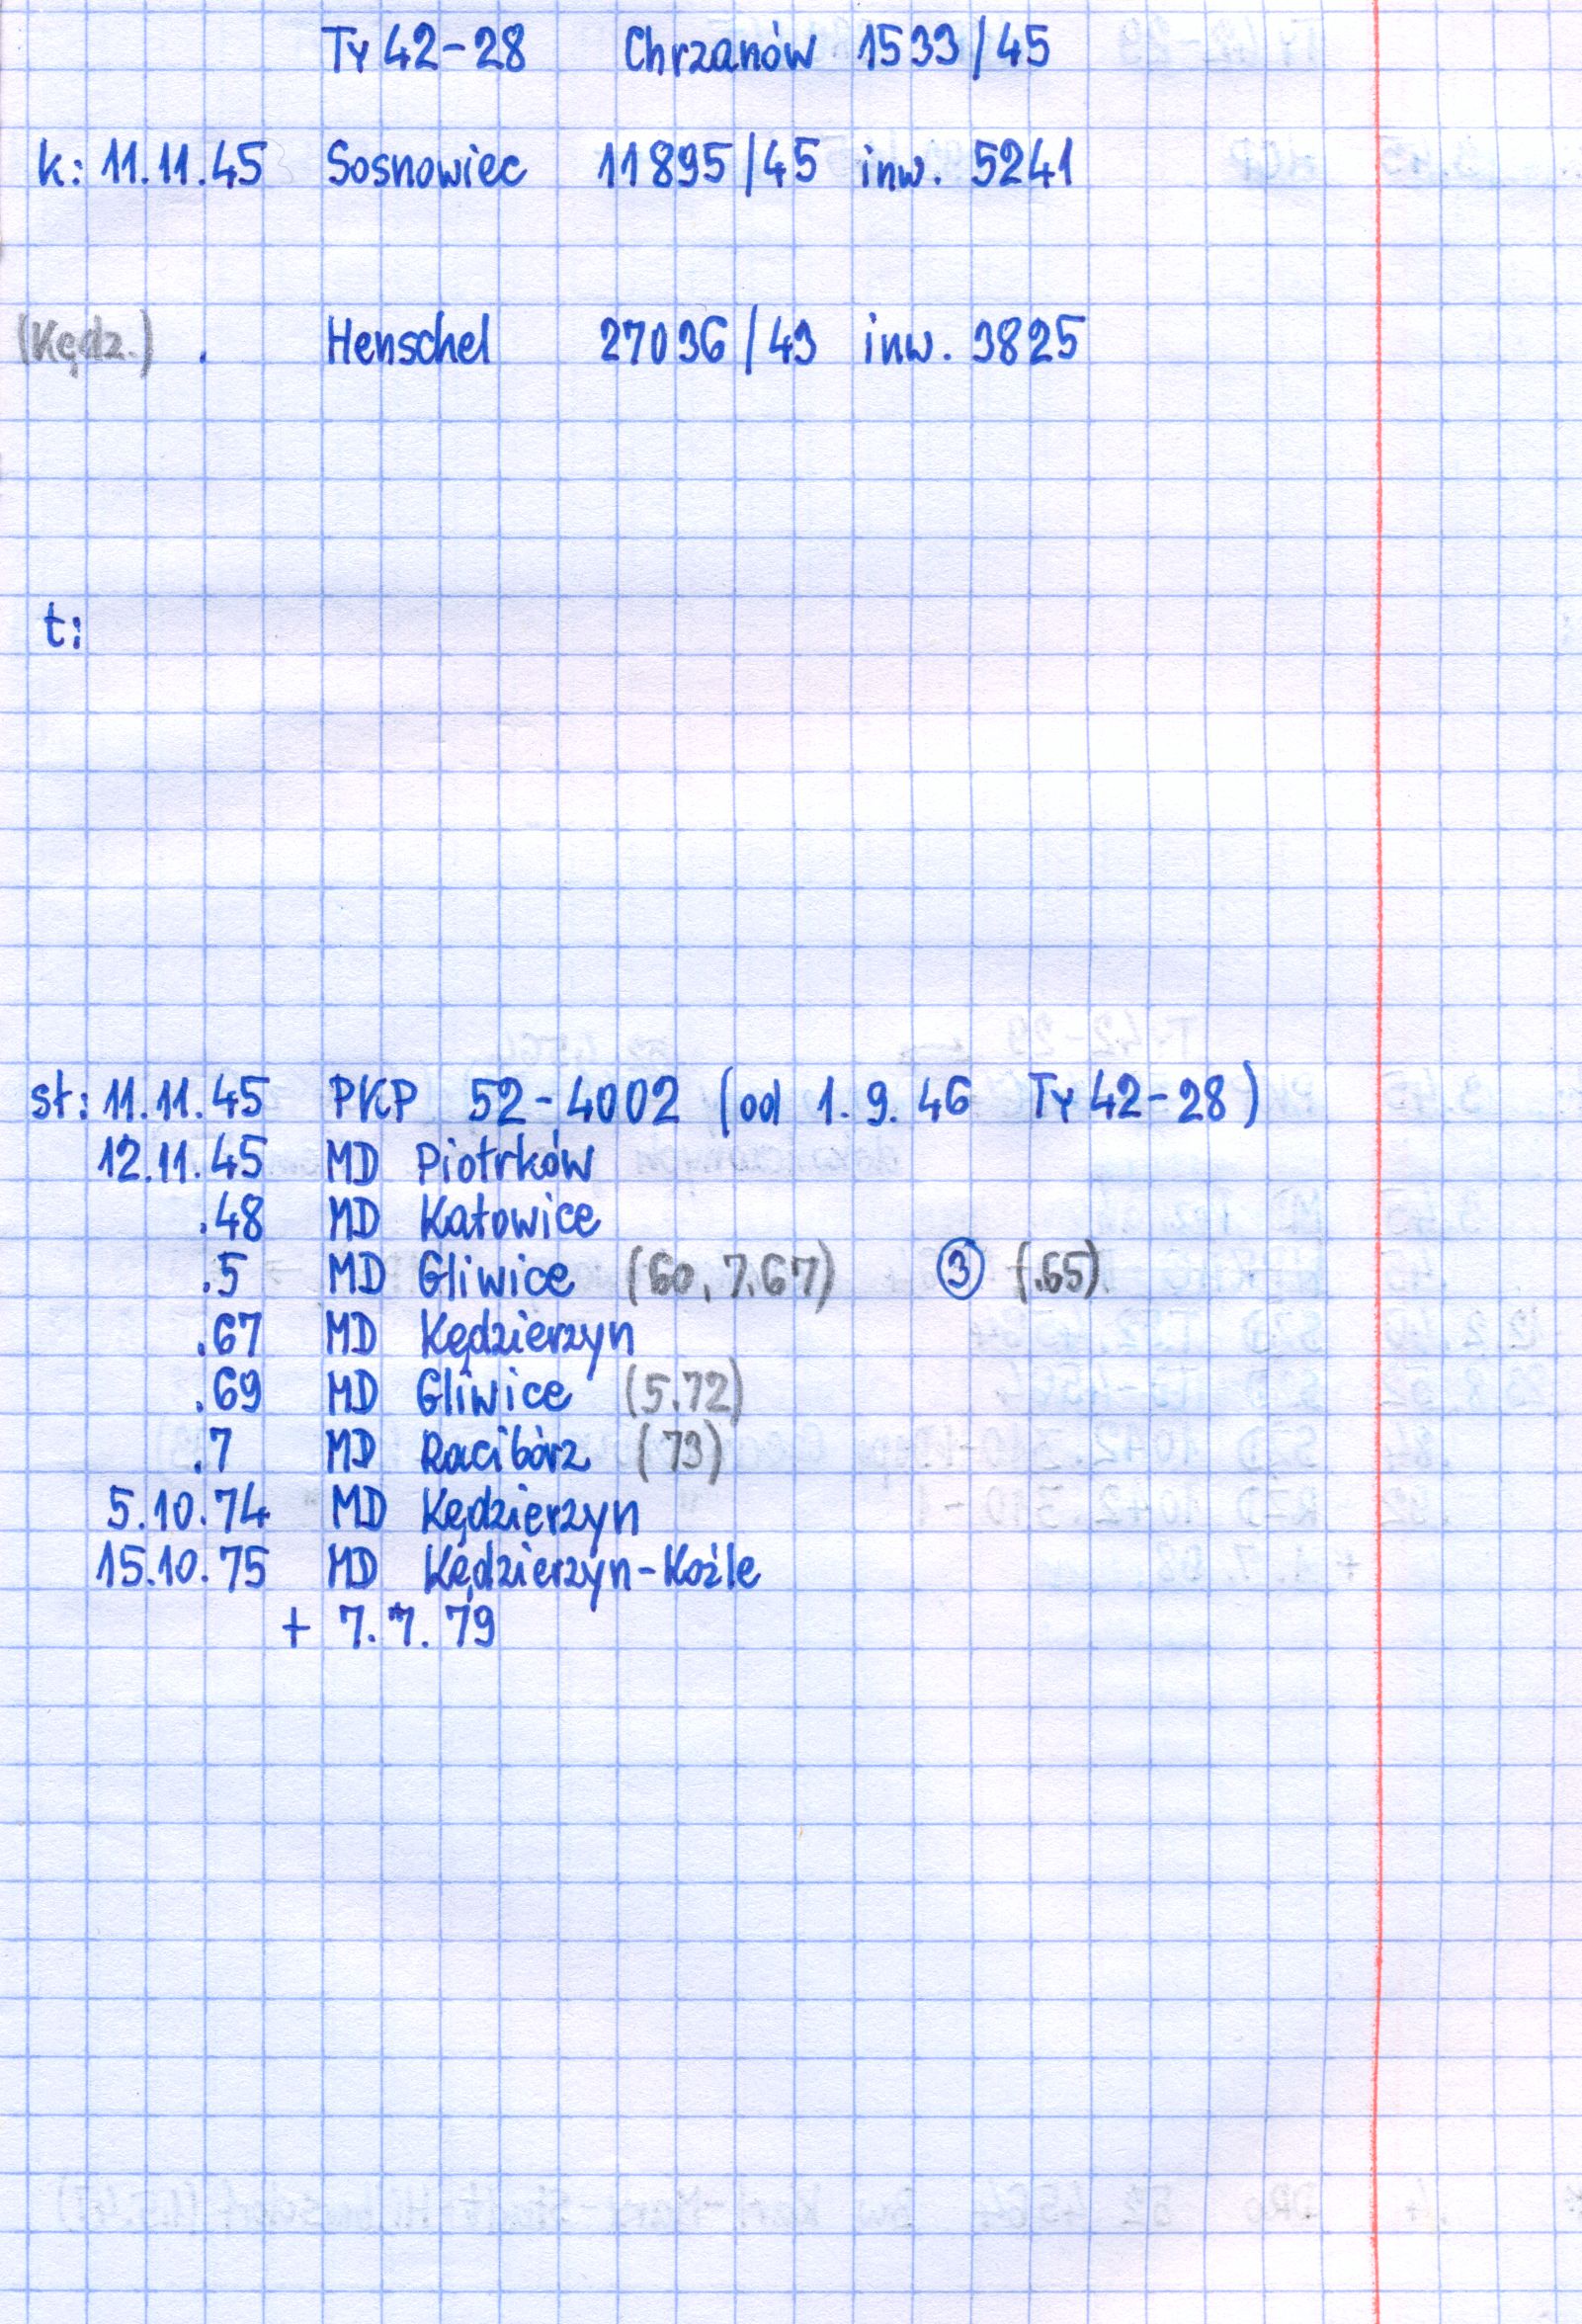 Ty 42-28 Chrzanów 1533/45
k: 11.11.45 Sosnowiec 11895/45 inw. 5241
(Kędz.) . Henschel 27036/43 inw. 3825
t:
st: 11.11.45 PKP 52-4002 (od 1.9.46 Ty 42-28)
12.11.45 MD Piotrków
.48 MD Katowice
.5 MD Gliwice (60, 7.67) ③ (.65)
.67 MD Kędzierzyn
.69 MD Gliwice (5.72)
.7 MD Racibórz (73)
5.10.74 MD Kędzierzyn
15.10.75 MD Kędzierzyn-Koźle
+ 7.7.79